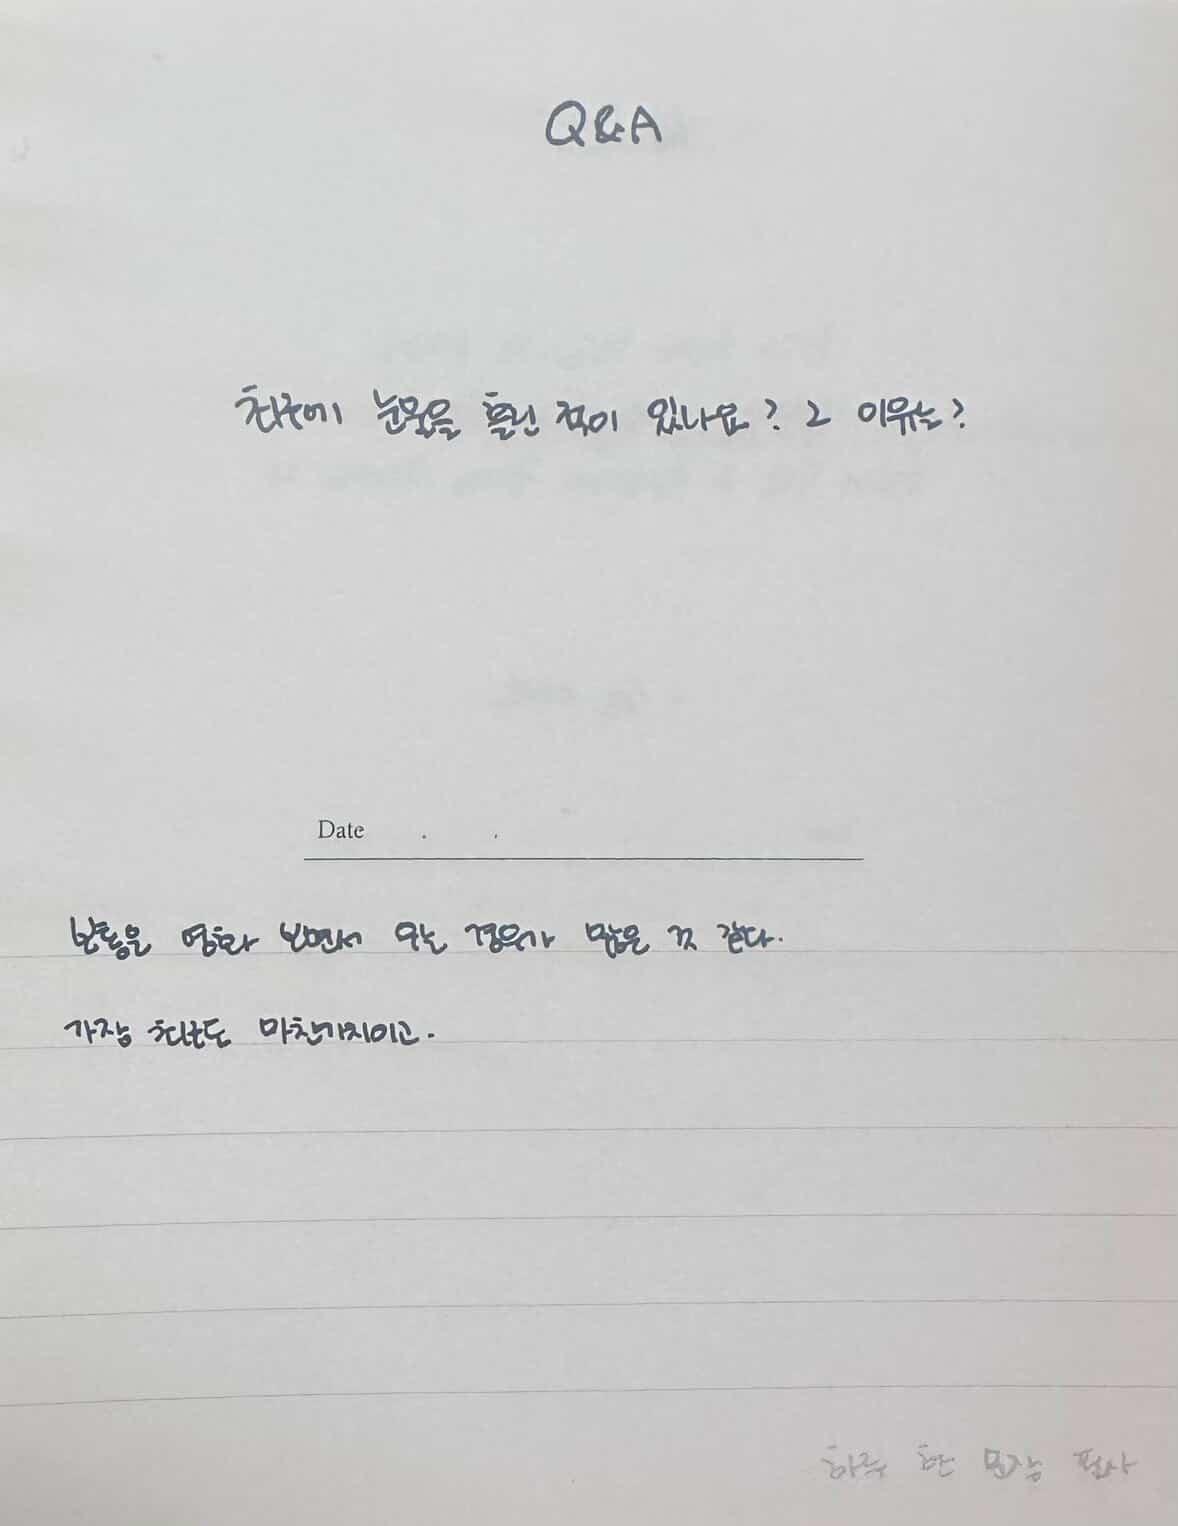 Q&A
최근에 눈물을 흘린 적이 있나요? 그 이유는?
Date . .
보통은 영화 보면서 우는 경우가 많은 것 같다.
가장 최근도 마찬가지이고.
하루 한 문장 필사